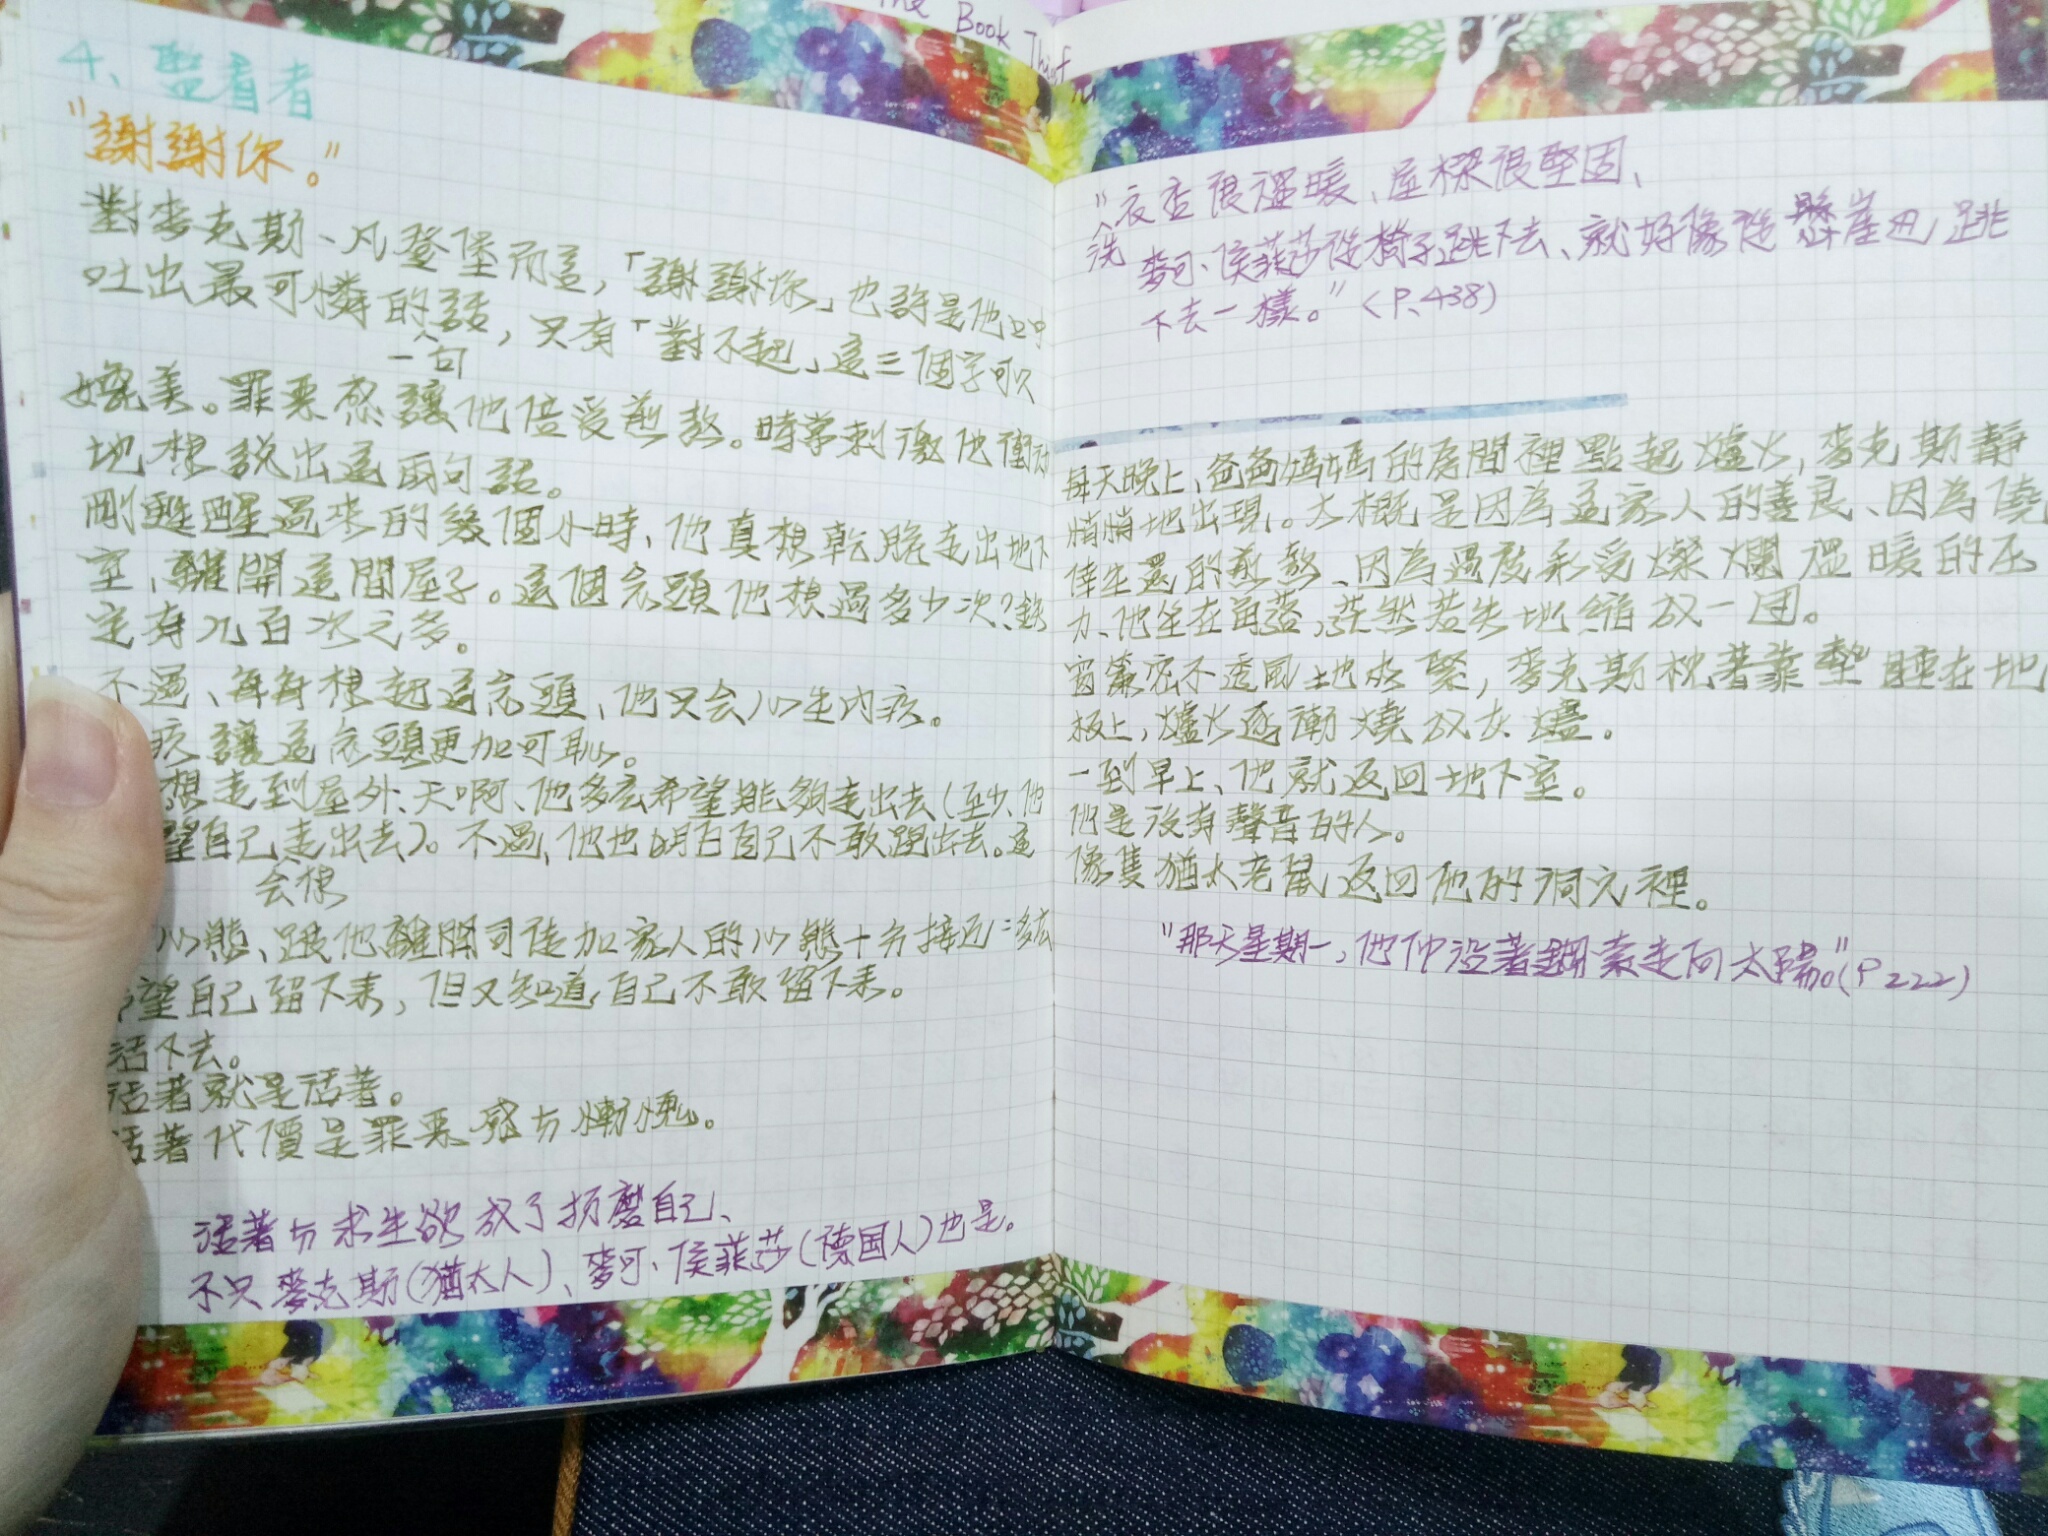 The Book Thief
4、監看者
"謝謝你。"
對麥克斯、凡登堡而言,「謝謝你」也許是他口中
吐出最可憐的話,只有「對不起」這三個字可以
一句
媲美。罪惡感讓他倍受煎熬。時常刺激他衝動
地想說出這兩句話。
剛甦醒過來的幾個小時、他真想乾脆走出地下
室、離開這間屋子。這個念頭他想過多少次?鐵
定有九百次之多。
不過、每每想起這念頭、他只会心生內疚。
疚讓這念頭更加可恥。
想走到屋外、天啊、他多么希望能夠走出去(至少、他
望自己走出去)。不過、他也明白自己不敢踏出去。這
会使
心態、跟他離開司徒加家人的心態十分接近:多么
希望自己留下來,但又知道自己不敢留下來。
活下去。
活著就是活著。
活著代價是罪惡感与慚愧。
活著与求生欲成了折磨自己、
不只麥克斯(猶太人)、麥可、侯菲莎(德国人)也是。
"衣杏很溫暖、屋樑很堅固、
洗
麥可、侯菲莎從椅子跳下去、就好像從懸崖边跳
下去一樣。"(P.438)
每天晚上、爸爸媽媽的房間裡點起爐火,麥克斯靜
悄悄地出現。大概是因為這家人的善良、因為僥
倖生還的煎熬、因為過度承受燦爛溫暖的压
力、他坐在角落,茫然若失地縮成一团。
窗簾密不透風地夾緊,麥克斯枕著靠墊睡在地
板上,爐火逐漸燒成灰燼。
一到早上、他就返回地下室。
他是沒有聲音的人。
像隻猶太老鼠返回他的洞穴裡。
"那天星期一,他们沿著鋼索走向太陽。"(P222)